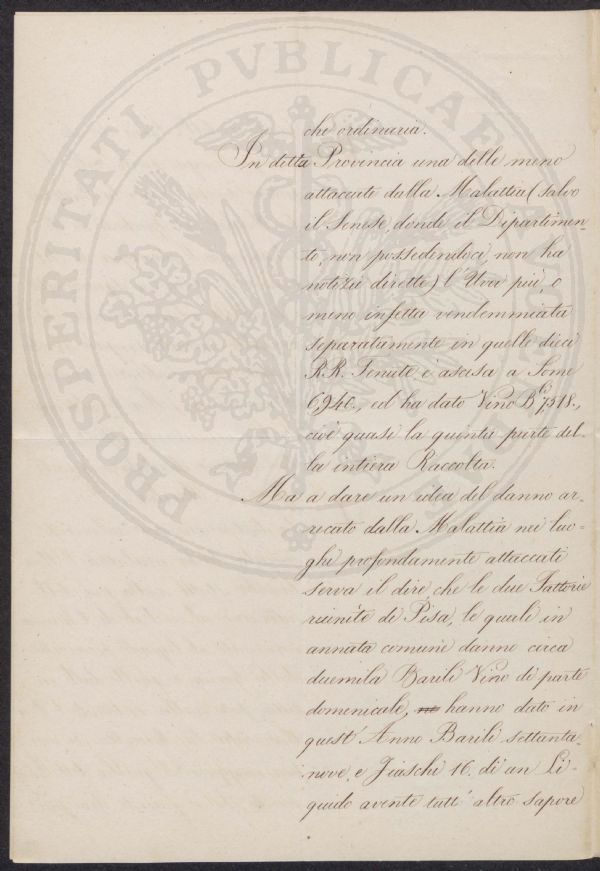 PROSPERITATI PVBLICAE
che ordinaria.
In detta Provincia una delle meno
attaccate dalla Malattia (salvo
il Senese, donde il Dipartimen-
to, non possedendoci, non ha
notizie dirette) l'Uva più, o
meno infetta vendemmiata
separatamente in quelle dieci
R.R. Tenute è ascesa a Some
6,940., ed ha dato Vino B.li 7518.,
cioè quasi la quinta parte del-
la intiera Raccolta.
Ma a dare un idea del danno ar-
recato dalla Malattia nei luo-
ghi profondamente attaccati
serva il dire, che le due Fattorie
riunite di Pisa, le quali in
annata comune danno circa
duemila Barili Vino di parte
domenicale, hanno dato in
quest'Anno Barili settanta-
nove, e Fiaschi 16. di un Li-
quido avente tutt'altro sapore